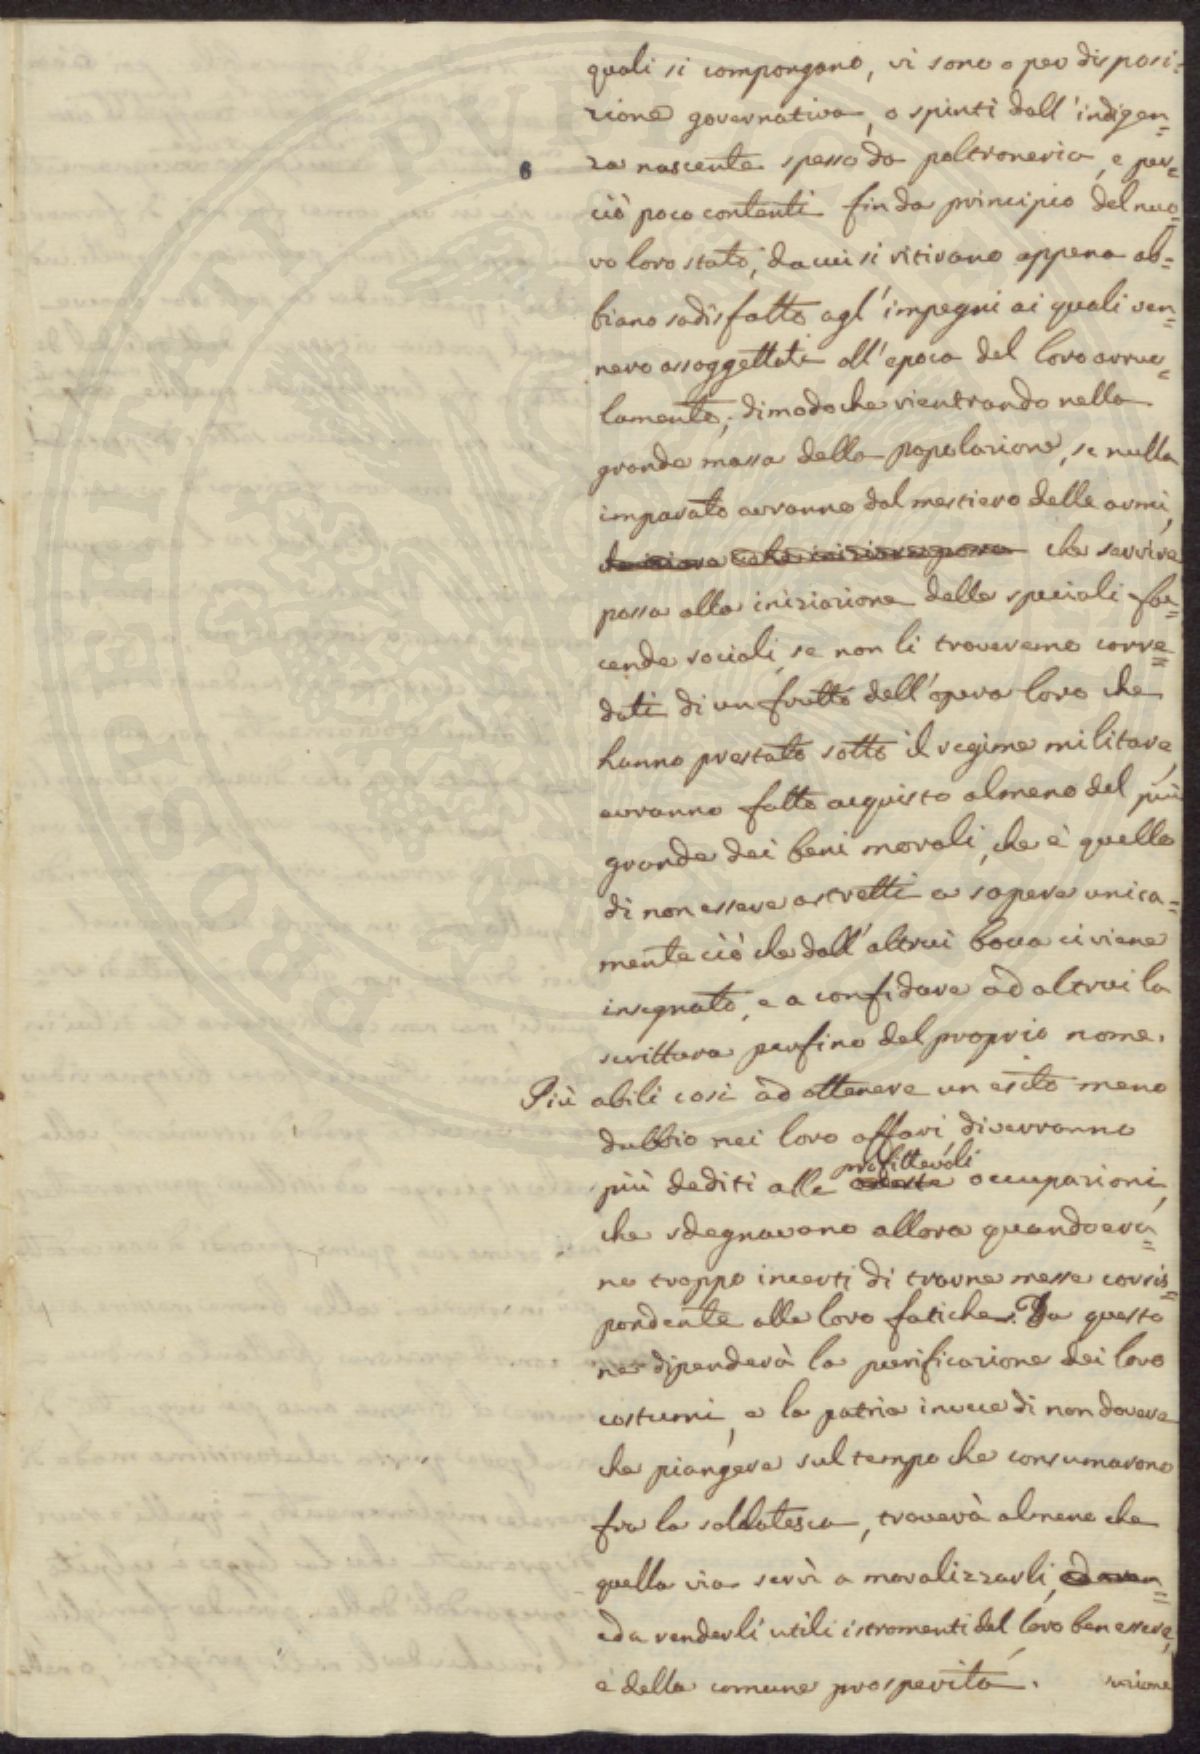 quali si compongono, vi sono o per disposi-
zione governativa, o spinti dall'indigen=
6
za nascente spesso da poltroneria, e per=
ciò poco contenti fin da principio del nuo=
vo loro stato, da cui si ritirano appena ab=
biano sodisfatto agl'impegni ai quali ven=
nero assoggettati all'epoca del loro arruo=
lamento; dimodoche rientrando nella
grande massa della popolazione, se nulla
imparato avranno dal mestiero delle armi,
che servire
possa alla iniziazione delle speciali fac=
cende sociali, se non li troveremo corre=
dati di un frutto dell'opera loro che
hanno prestato sotto il regime militare,
avranno fatto acquisto almeno del più
grande dei beni morali, che è quello
di non essere astretti a sapere unica=
mente ciò che dall'altrui bocca ci viene
insegnato, e a confidare ad altrui la
scrittura perfino del proprio nome.
Più abili così ad ottenere un esito meno
dubbio nei loro affari, diverranno
più dediti alle profittevoli occupazioni,
che sdegnavano allora quando era=
no troppo incerti di trarne messe corris=
pondente alle loro fatiche. Da questo
ne dipenderà la purificazione dei loro
costumi, e la patria invece di non dovere
che piangere sul tempo che consumarono
fra la soldatesca, troverà almeno che
quella via servì a moralizzarli,
ed a renderli utili istromenti del loro ben essere,
e della comune prosperità.
PROSPERITATI PUBL